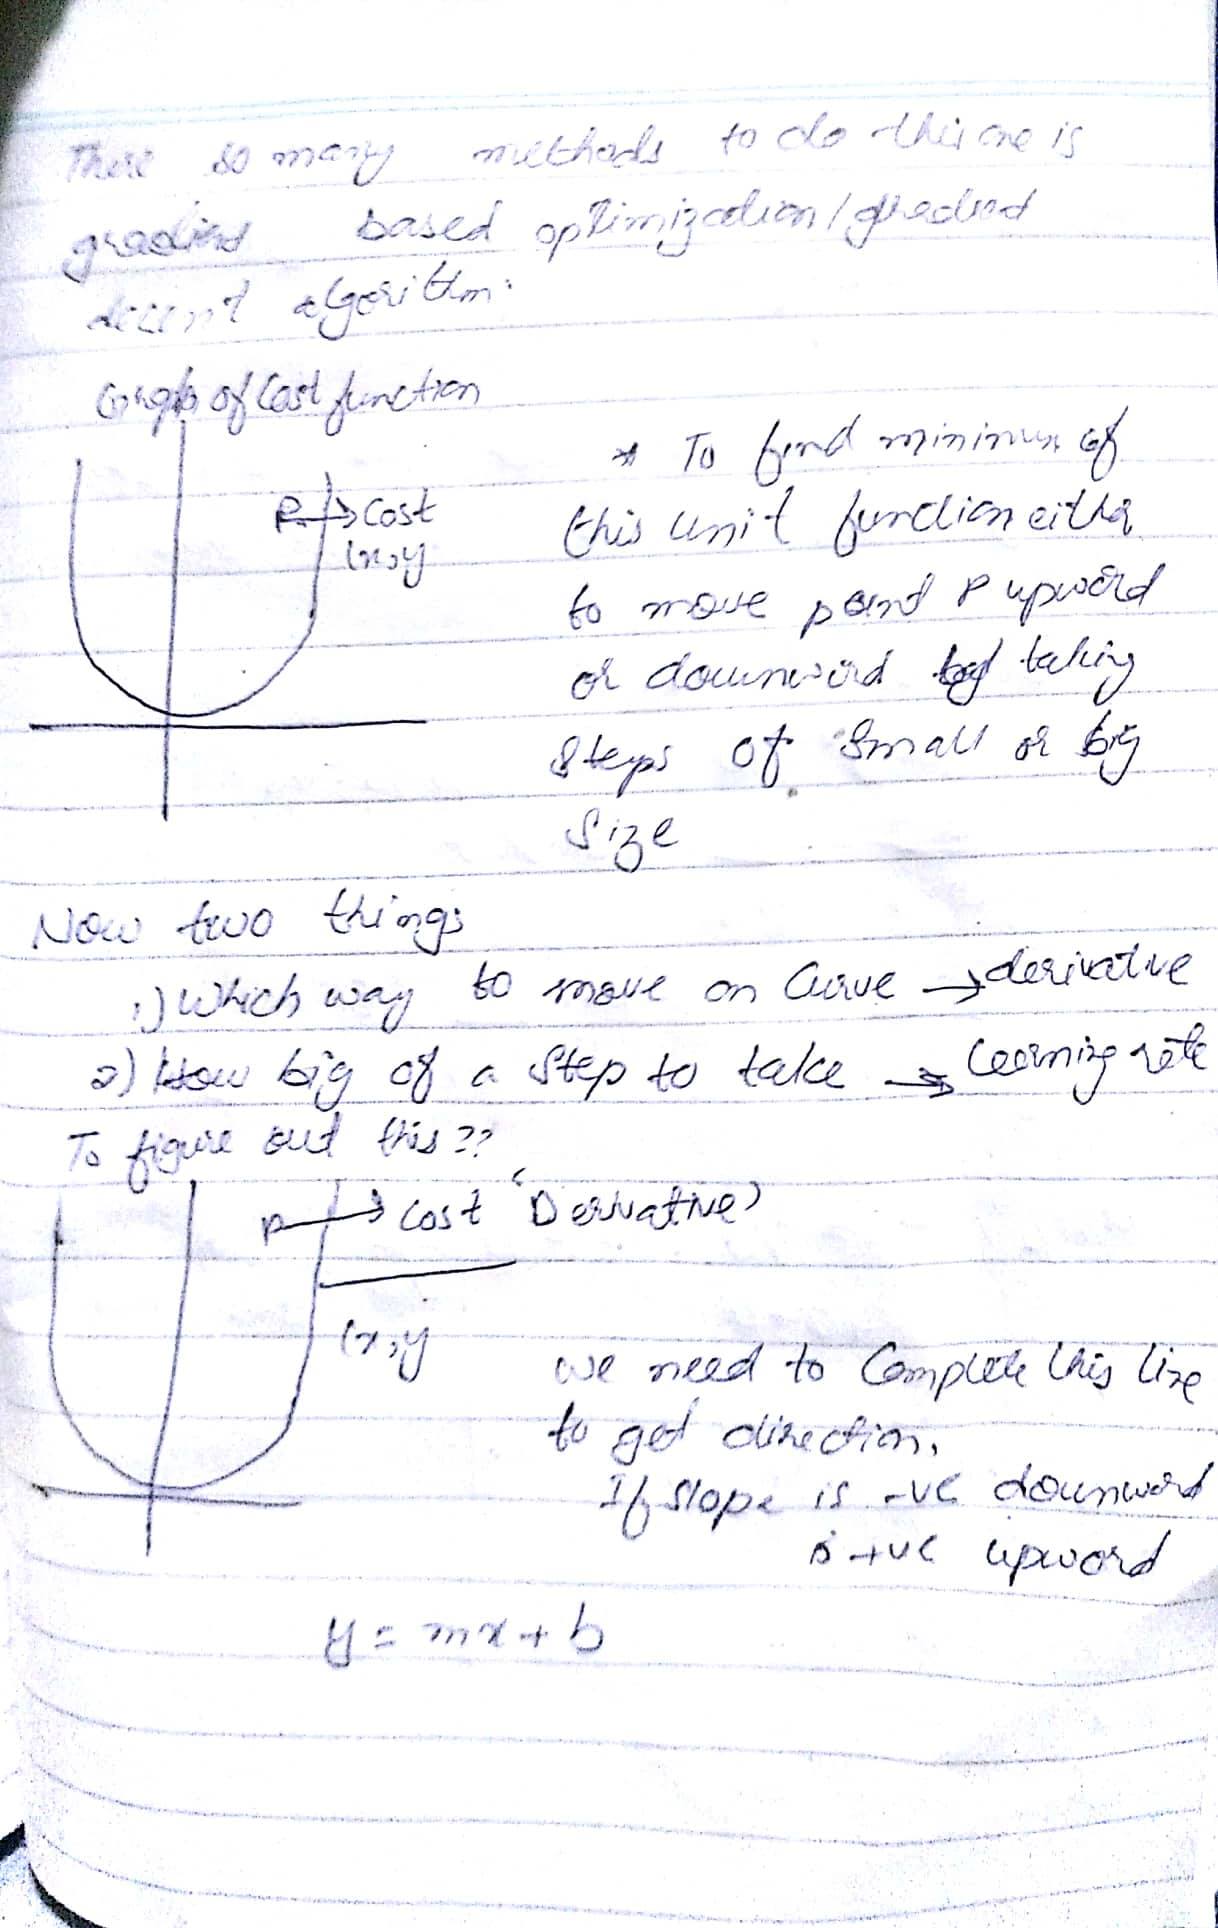 There so many methods to do this one is
gradient based optimization / gradient
decent algorithm.
Graph of Cost function
P → Cost
(x,y
* To find minimum of
this unit function either
to move point P upword
or downword by taking
Steps of small or big
Size
Now two things
1) Which way to move on Curve → derivative
2) How big of a Step to take → learning rate
To figure out this ??
P → Cost 'Derivative'
(x,y
we need to Complete this line
to get direction.
If slope is -ve downword
is +ve upword
y = mx + b